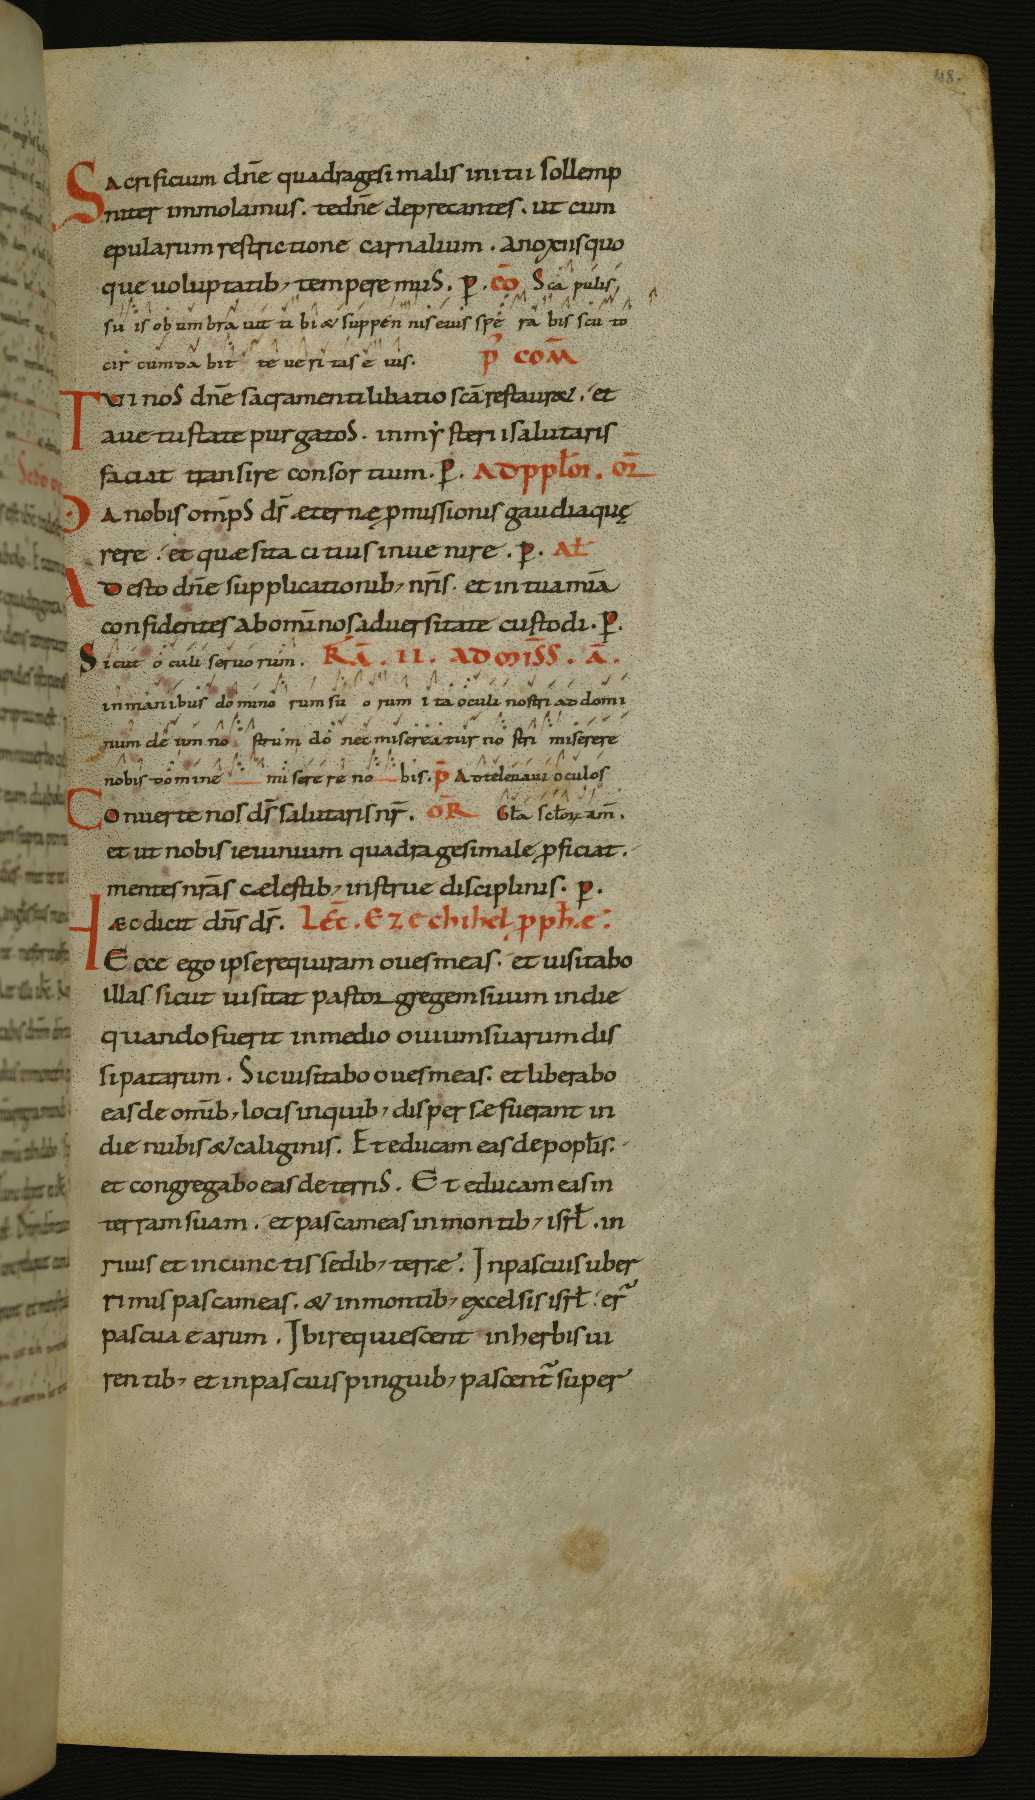 48.
Sacrificium dn̄e quadragesimalis initii sollemp
niter immolamus. te dn̄e deprecantes. ut cum
epularum restrictione carnalium. a noxiis quo
que uoluptatib; temperemus. p. cō Scapulis
suis obumbrauit tibi & sub pennis eius sperabis scuto
circumdabit te ueritas eius. p̄ com̄
Tui nos dn̄e sacramenti libatio sc̄a restauret. et
a uetustate purgatos. in mẏsterii salutaris
faciat transire consortium. p. ad ppl̄m. or̄
Da nobis omp̄s ds̄ æternę pmissionis gaudia quę
rere. et quæsita citius inuenire. p. al̄
Adesto dn̄e supplicationib; nr̄is. et in tua mīa
confidentes ab omī nos aduersitate custodi. p.
Sicut oculi seruorum. Fr̄a. II. ad miss̄. ā.
in manibus dominorum suorum ita oculi nostri ad domi
num deum nostrum donec misereatur nostri miserere
nobis domine miserere nobis. p̄ Ad te leuaui oculos
Conuerte nos ds̄ salutaris nr̄. or̄ Gl̄a scl̄orum am̄.
et ut nobis ieiunium quadragesimale pficiat.
mentes nr̄as cælestib; instrue disciplinis. p.
Hæc dicit dn̄s ds̄. Lēc. Ezechihel pph̄e:
Ecce ego ipse requiram oues meas. et uisitabo
illas sicut uisitat pastor gregem suum in die
quando fuerit in medio ouium suarum dis
sipatarum. Sic uisitabo oues meas. et liberabo
eas de omīb; locis in quib; dispersæ fuerant in
die nubis & caliginis. Et educam eas de popl̄is.
et congregabo eas de terris. Et educam eas in
terram suam. et pascam eas in montib; isrl̄. in
riuis et in cunctis sedib; terræ. In pascuis uber
rimis pascam eas. & in montib; excelsis isrl̄. er̄
pascua earum. Ibi requiescent in herbis ui
rentib; et in pascuis pinguib; pascent̄ super